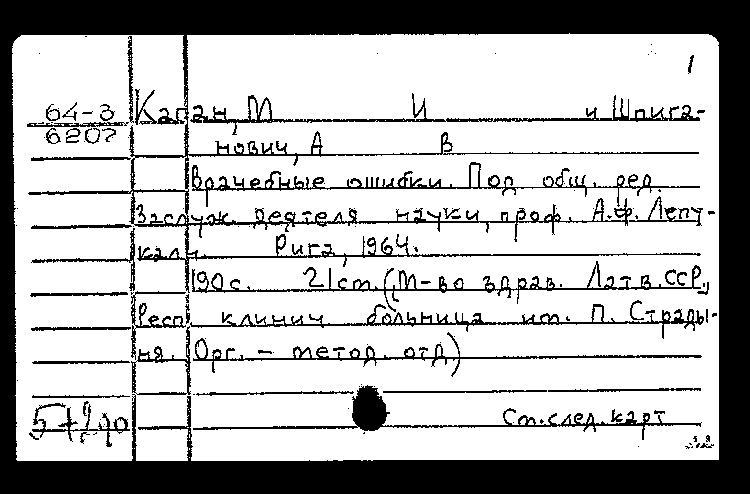 1
64-3 Каган, М И и Шпига-
6207 нович, А В
Врачебные ошибки. Под общ. ред.
Заслуж. деятеля науки, проф. А.Ф. Лепу-
калн. Рига, 1964.
190 с. 21 см. (М-во здрав. Латв. ССР.,
Респ. клинич больница им. П. Страды-
ня. Орг. - метод. отд)
См. след. карт